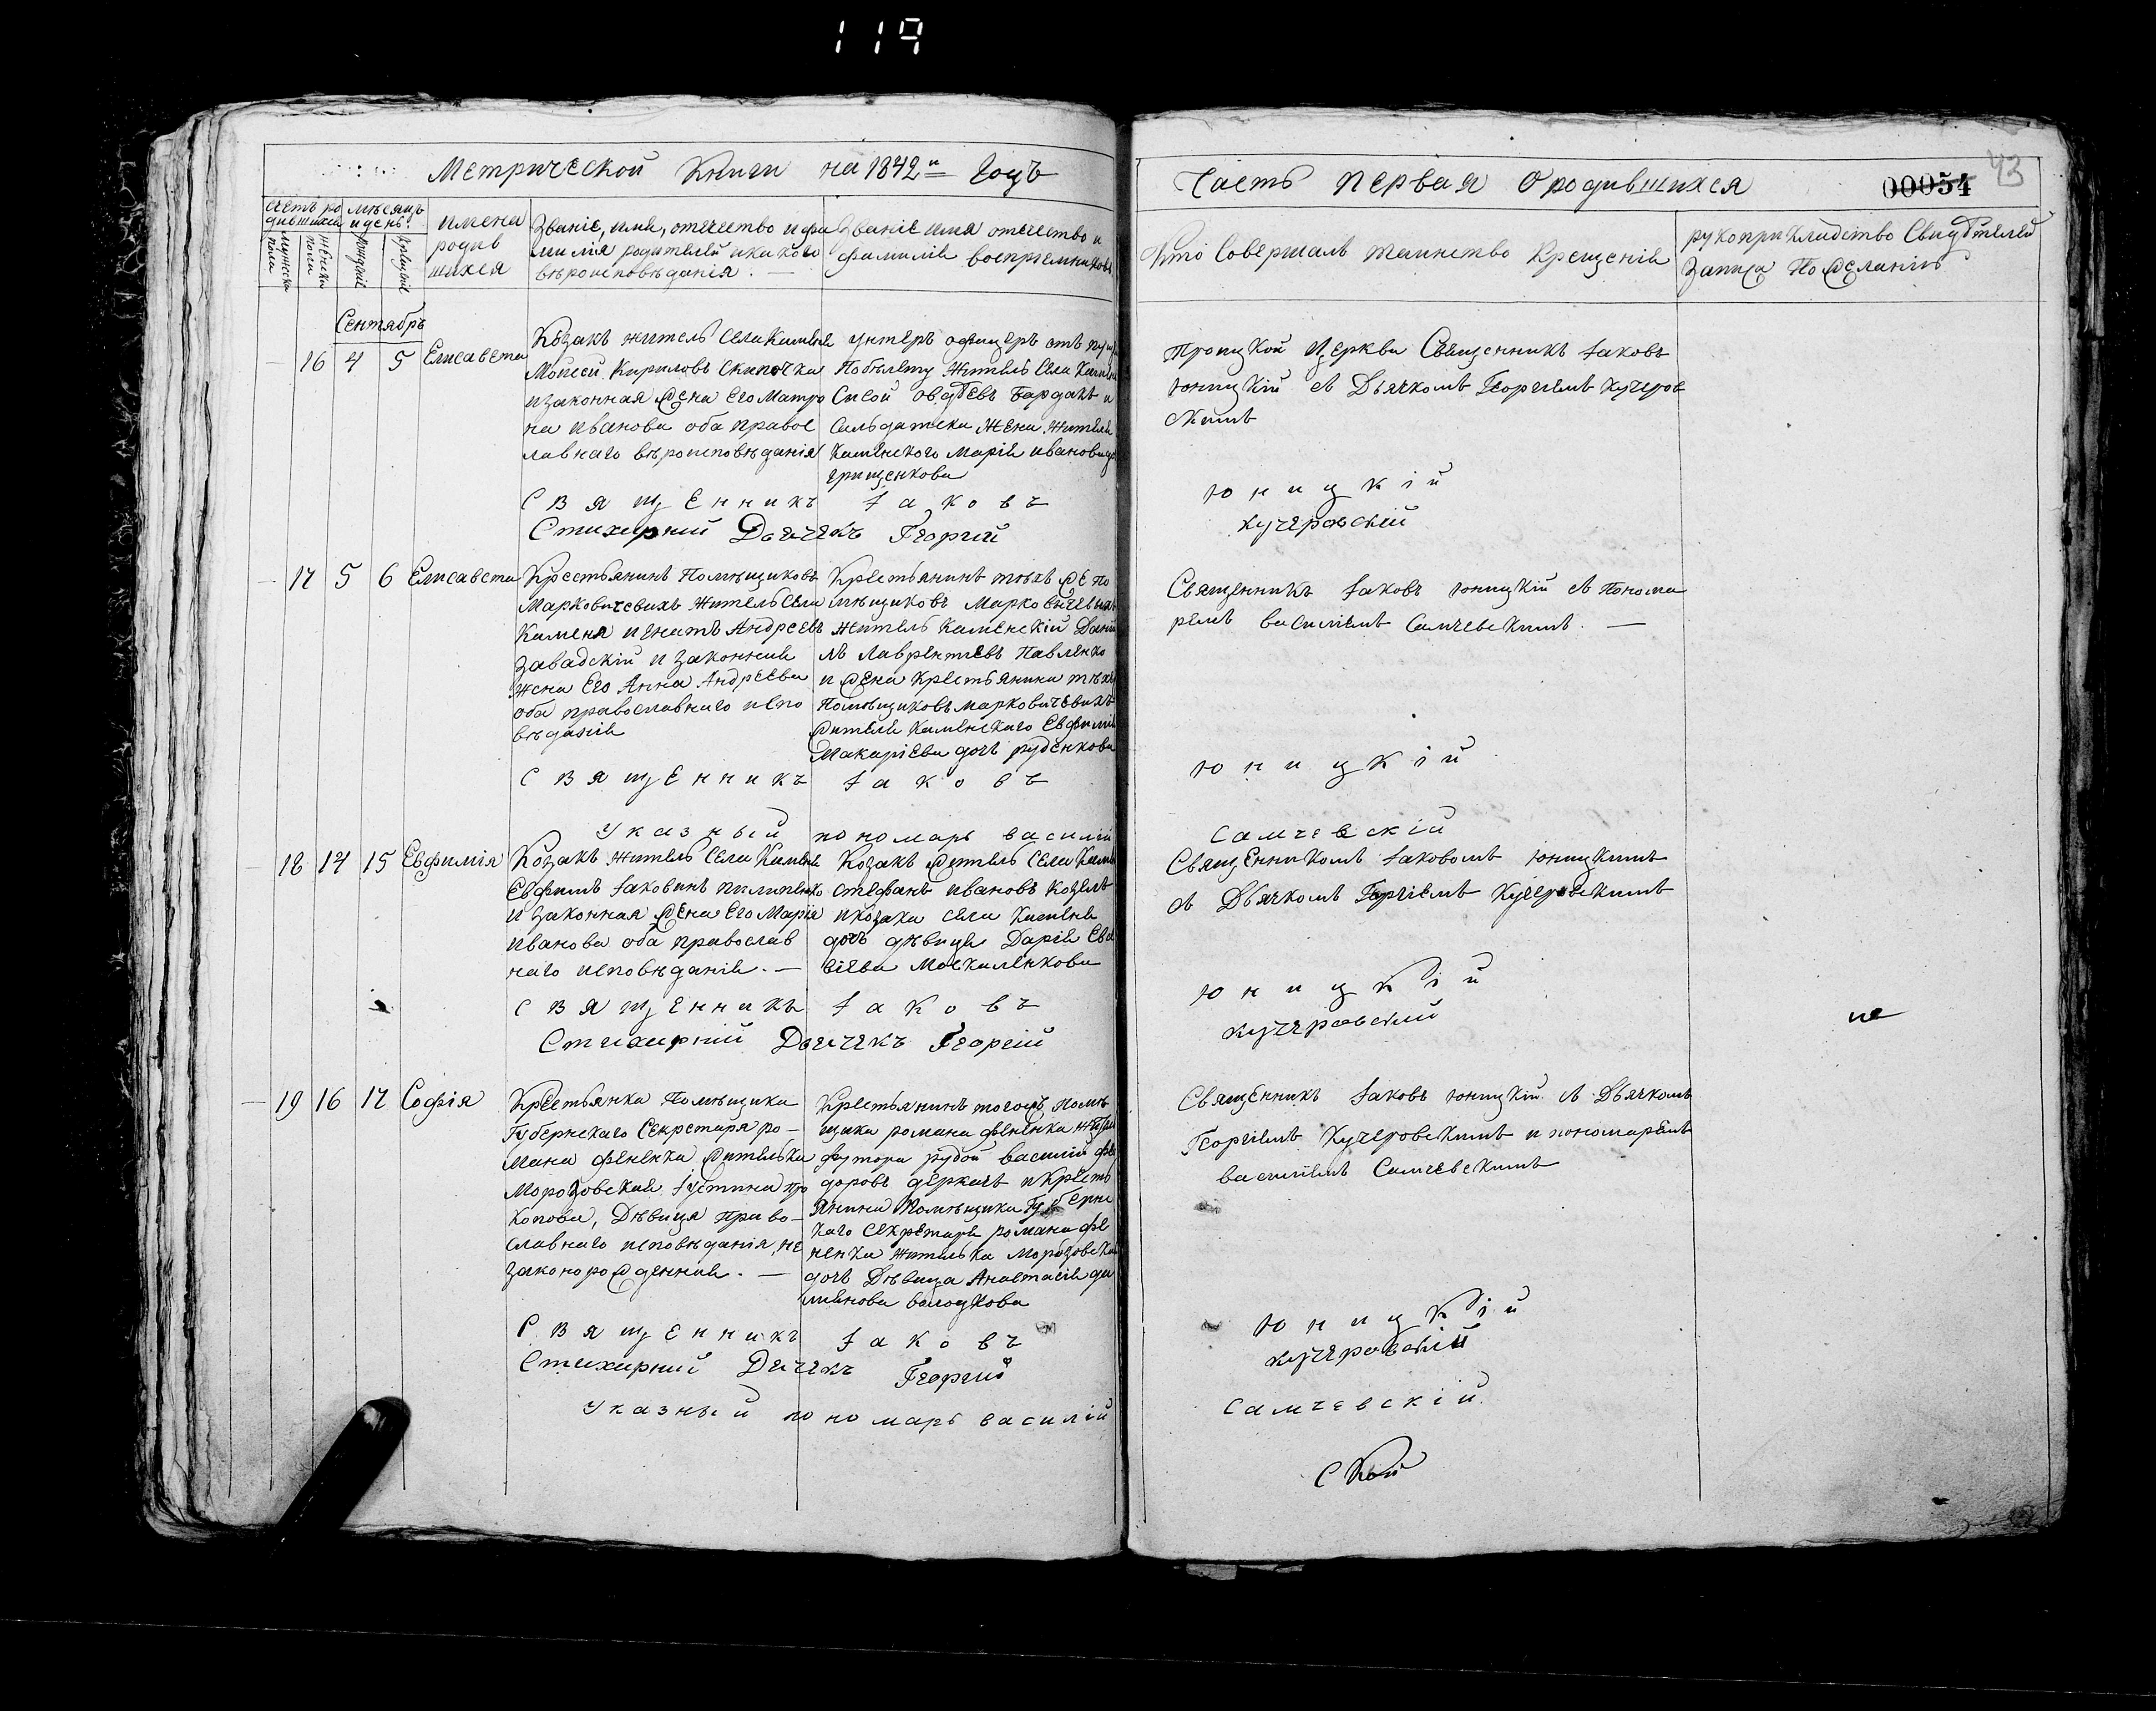 119
Метрической Книги на 1842й Годъ
Счетъ ро
дившихся
мѣсяцъ
и день.
мужеска
пола
женска
пола
рожденія
крещенія
имена
родив
шихся
Званіе, имя, отечество и фа
милія родителей и какого
вѣроисповѣданія. —
Званіе имя отечество и
фамилія воспріемниковъ
Сентябрь
16 4 5 Елисавета
Козакъ житель села Каменя
Мойсей Кириловъ Скипочка
и законная жена его Матро
на Иванова оба правос
лавнаго вѣроисповѣданія
унтеръ офицеръ отъ
По билету житель села Каменя
Сисой Овдѣевъ Бардакъ и
Салдатска жена жителя
Каменского Марія Иванова
Грищенкова
Священникъ Іаковъ
Стихарний Дьячекъ Георгій
17 5 6 Елисавета
Крестьянинъ Помѣщиковъ
Марковичевихъ житель села
Каменя Игнатъ Андреевъ
Завадскій и законная
жена Его Анна Андреева
оба православнаго испо
вѣданія
Крестьянинъ тѣхъ же по
мѣщиковъ Марковичевихъ
житель Каменскій Дани
лъ Лаврентіевъ Павленко
и жена крестьянина тѣхъ
Помѣщиковъ Марковичевихъ
жителя Каменскаго Евфимія
Макаріева дочь Руденкова
Священникъ Іаковъ
Указный пономарь Василій
18 14 15 Евфимія
Козакъ житель села Каменя
Евфимъ Іаковинъ Пилипенко
и законная жена Его Марія
Иванова оба православ
наго исповѣданія. —
Козакъ житель села Каменя
Стефанъ Ивановъ Козелъ
и козака села Каменя
дочь дѣвица Дарія Евс
віева Москаленкова
Священникъ Іаковъ
Стихарній Дьячекъ Георгій
19 16 17 Софія
Крестьянка Помѣщика
Губернскаго Секретаря Ро—
мана Фененка жителька
Морозовская Іустина Про
копова, Дѣвица Право—
славнаго исповѣданія, не
законорожденная. —
Крестьянинъ тогожъ Помѣ
щика Романа Фененка
футора Рудой Василій Фе
доровъ Деркачъ и Кресть
янина Помѣщика Губернс
каго Секретаря Романа Фе
ненка жителька Морозовска
дочь Дѣвица Анастасія Да
міянова Володкова
Священникъ Іаковъ
Стихарний Дячекъ Георгій
Указный пономарь Василій
Часть Первая О родившихся
00054 43
Кто Совершалъ таинство Крещенія
рукоприкладство Свидѣтелей
записа По желанію
Троицкой Церкви Священникъ Іаковъ
Юницкій съ Дьячкомъ Георгіемъ Кучеров
скимъ
Юницкій
Кучеровскій
Священникъ Іаковъ Юницкій съ Понома
ремъ Василіемъ Самчевскимъ. —
Юницкій
Самчевскій
Священникомъ Іаковомъ Юницкимъ
съ Дьячкомъ Георгіемъ Кучеровскимъ
Юницкій
Кучеровский
не
Священникъ Іаковъ Юницкій съ Дьячкомъ
Георгіемъ Кучеровскимъ и пономаремъ
Василіемъ Самчевскимъ
Юницкій
Кучеровскій
Самчевскій.
Ской